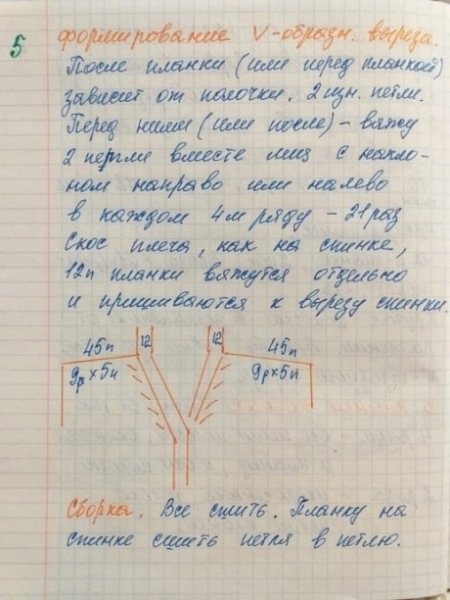 5
формирование V-образн. выреза.
После планки (или перед планкой)
зависит от полочки. 2 изн. петли.
Перед ними (или после) - вяжу
2 петли вместе лиц с накло-
ном направо или налево
в каждом 4м ряду - 21 раз
Скос плеча, как на спинке,
12п планки вяжутся отдельно
и пришиваются к вырезу спинки.
45п 12 12 45п
9р х 5п 9р х 5п
Сборка. Все сшить. Планку на
спинке сшить петля в петлю.